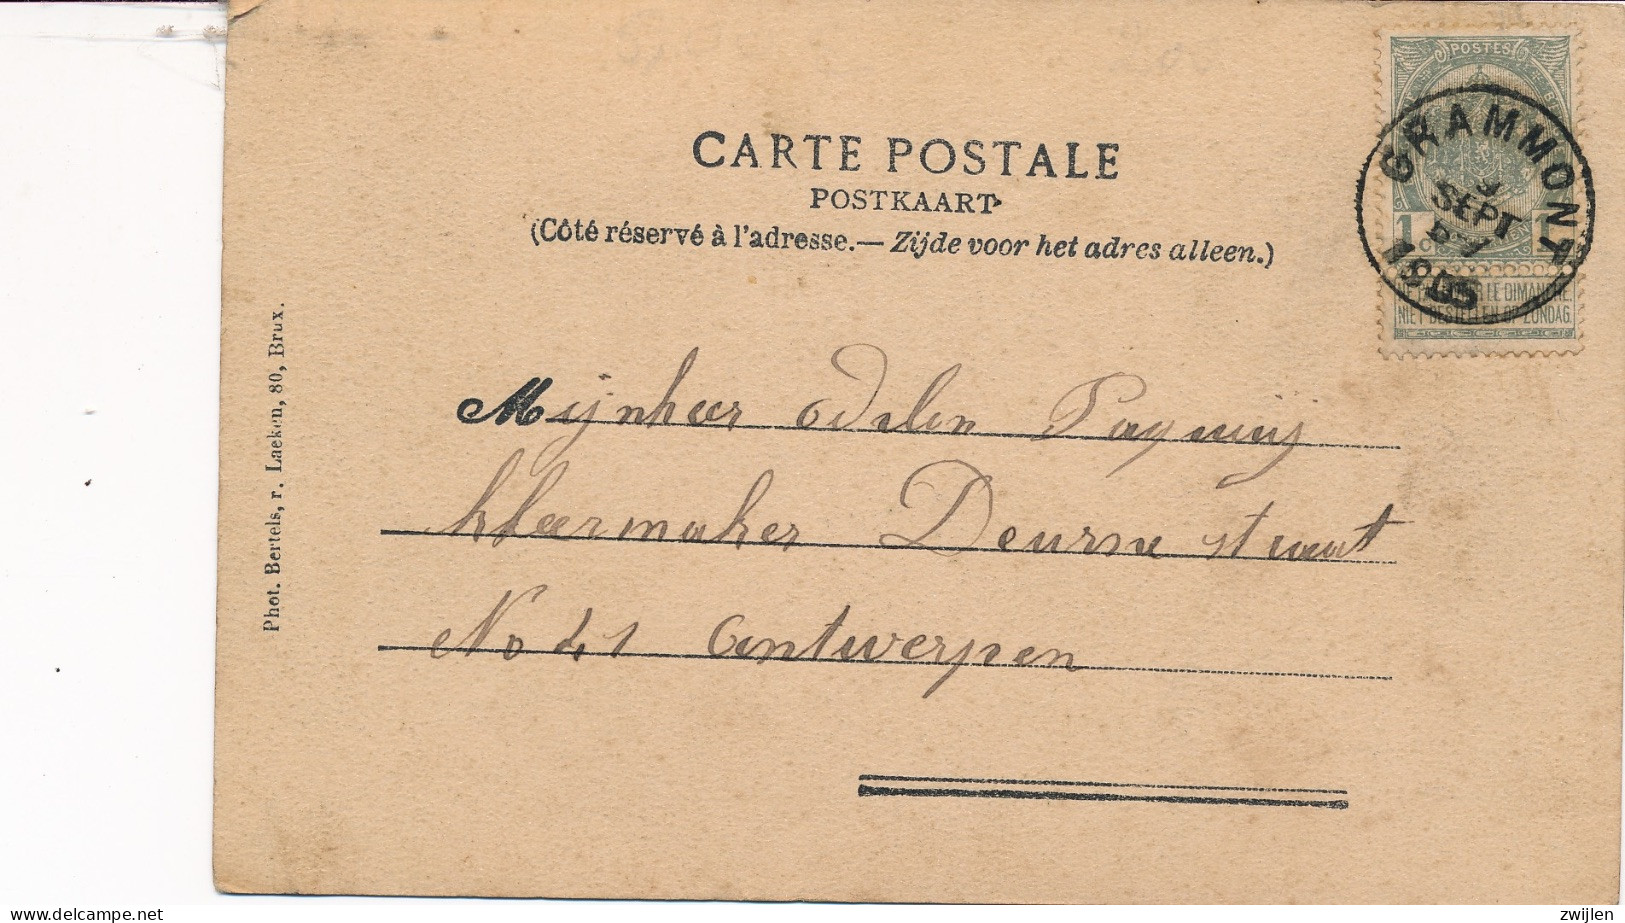 POSTES
GRAMMONT
SEPT
1905
1 1
NIET BESTELLEN OP ZONDAG.
CARTE POSTALE
POSTKAART
(Côté réservé à l'adresse.— Zijde voor het adres alleen.)
Mijnheer Odilon
kleermaker Deurne straat
No 41 Antwerpen
Phot. Bertels, r. Laeken, 80, Brux.
delcampe.net
zwijlen